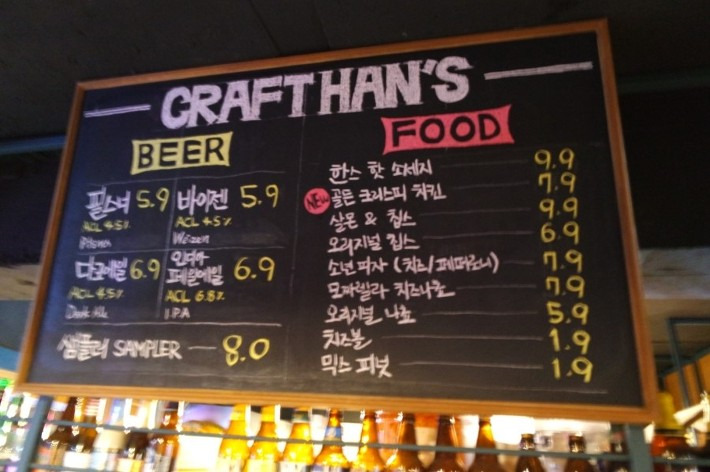 CRAFT HAN'S
BEER
필스너 5.9
ACL 4.5%
Pilsner
바이젠 5.9
ACL 4.5%
Weizen
다크에일 6.9
ACL 4.5%
Dark Ale
인디아
페일에일 6.9
ACL 6.8%
I.P.A
샘플러 SAMPLER 8.0
FOOD
한스 핫 소세지 9.9
NEW 골든 크리스피 치킨 7.9
살몬 & 칩스 9.9
오리지널 칩스 6.9
소년피자 (치즈/페퍼로니) 7.9
모짜렐라 치즈나쵸 7.9
오리지널 나쵸 5.9
치즈볼 1.9
믹스 피넛 1.9